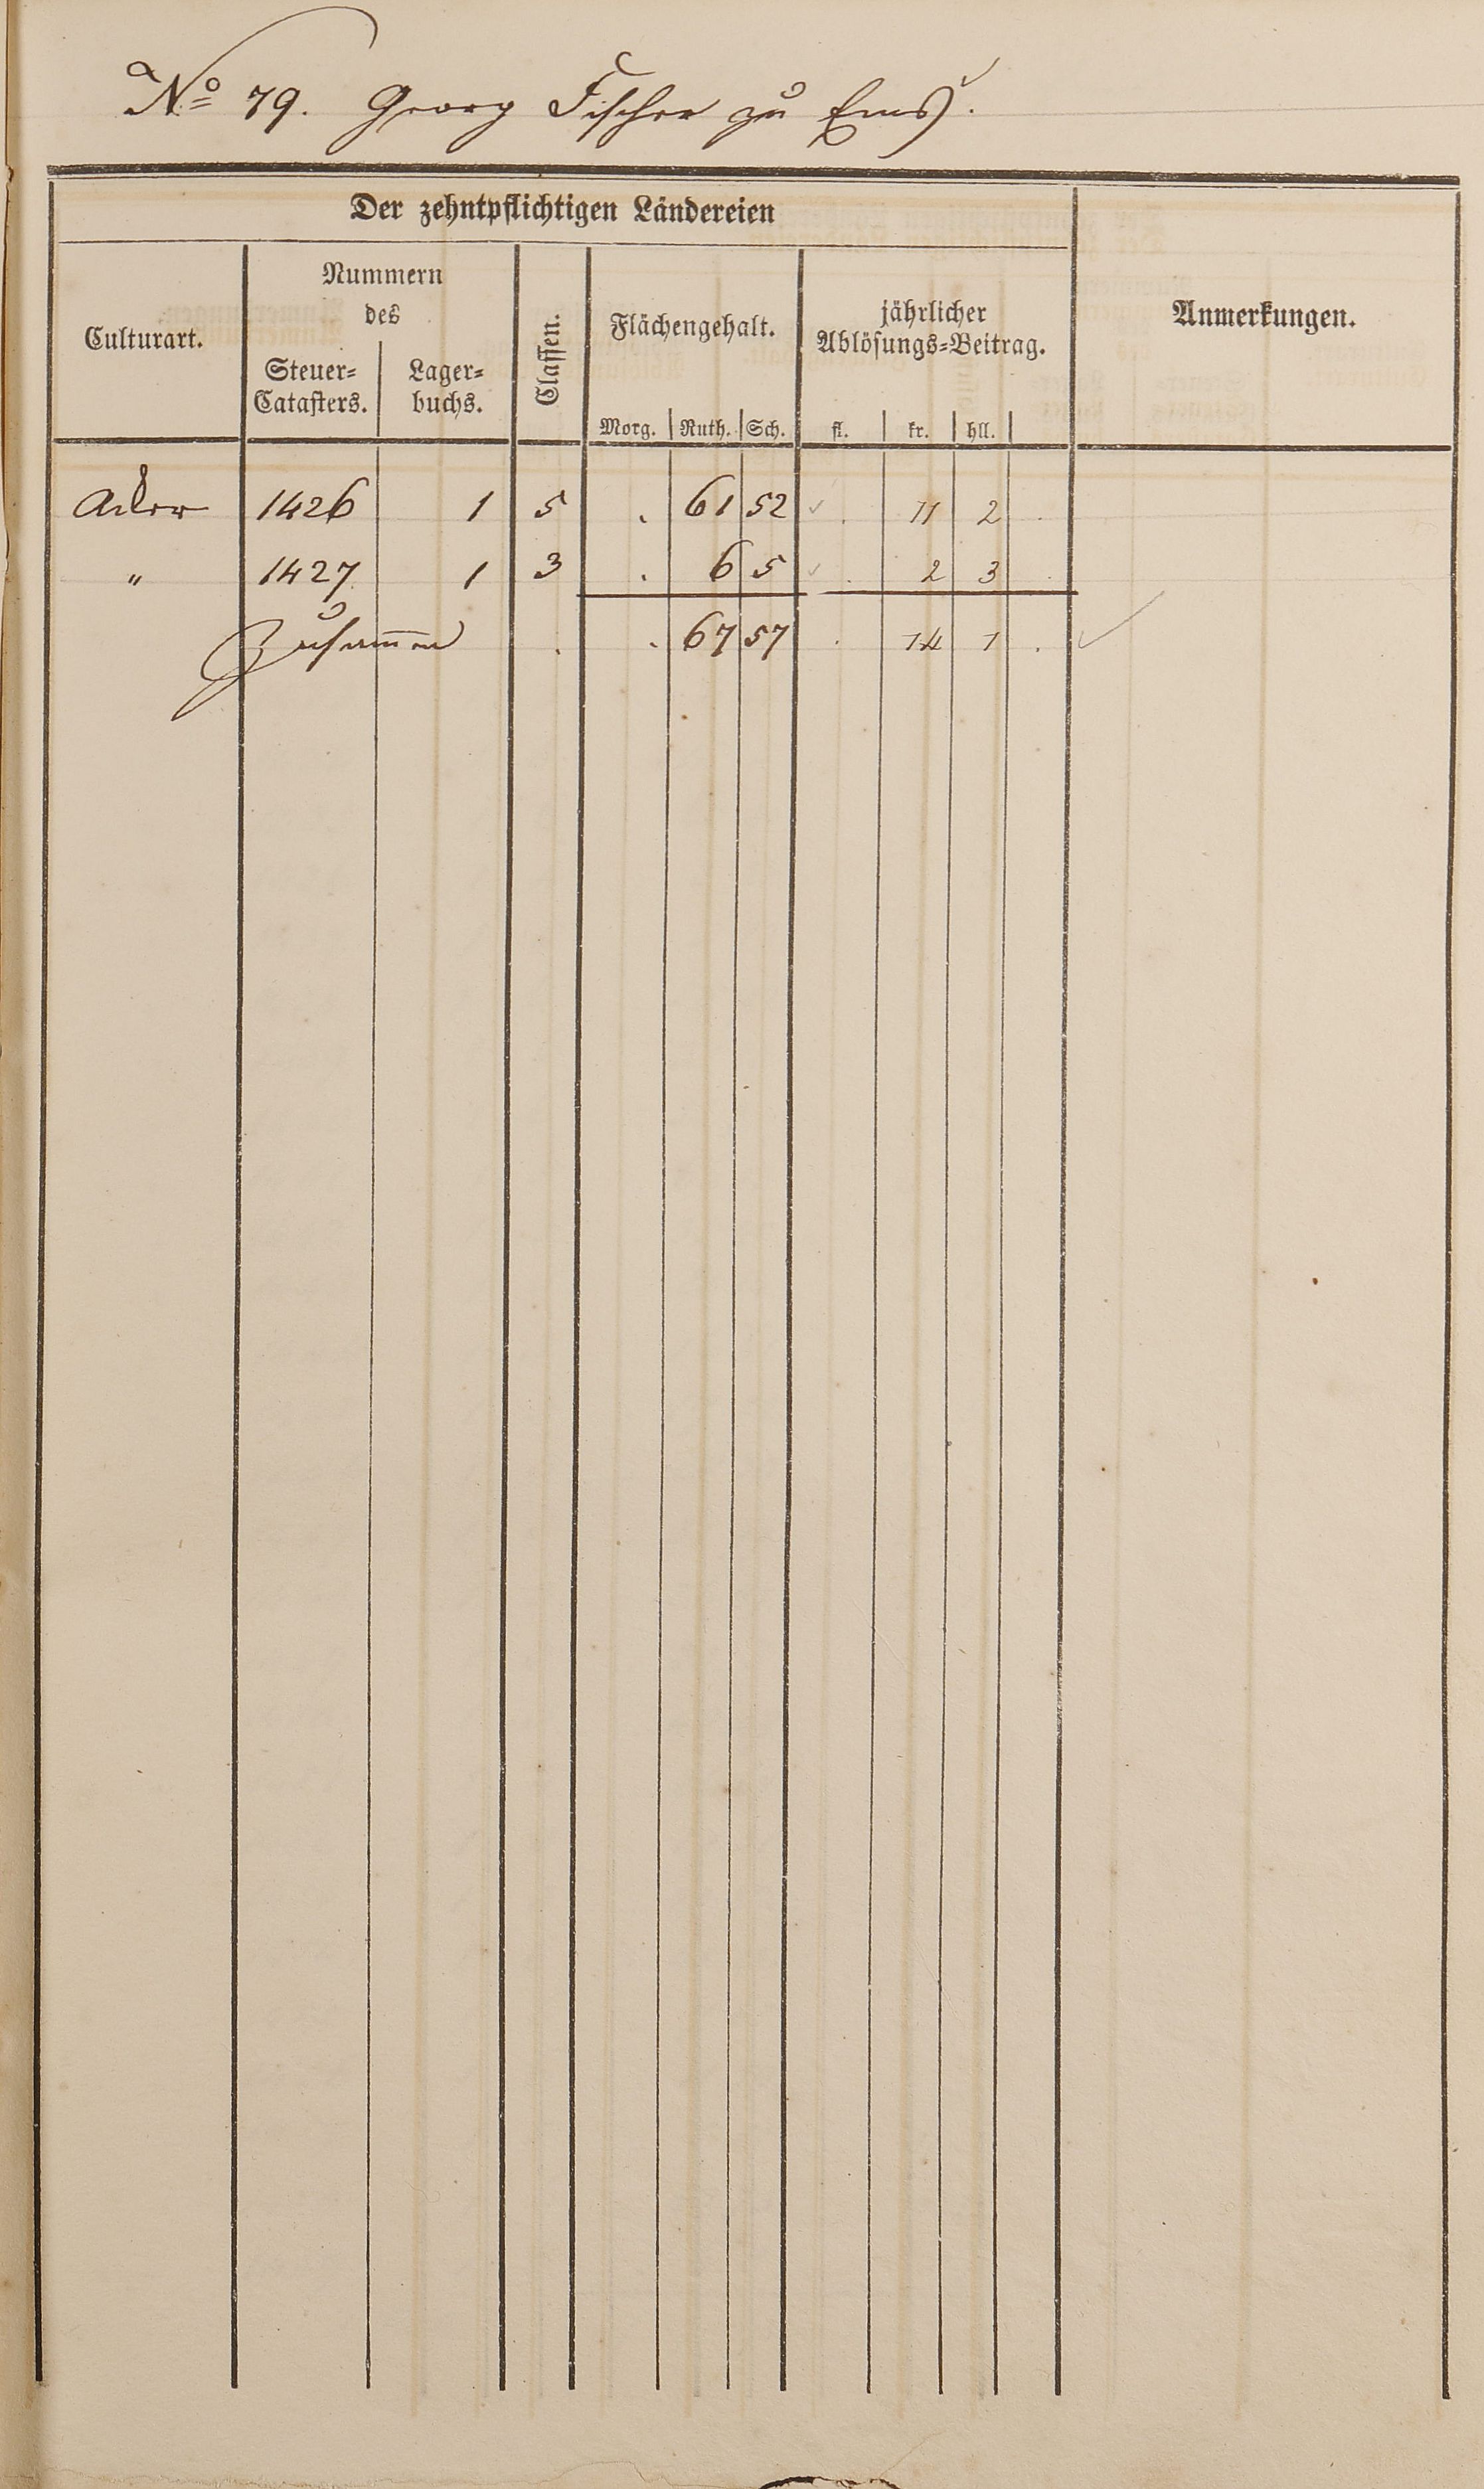 No 79. Georg Fischer zu Ems.
Der zehntpflichtigen Ländereien
Culturart.
Nummern
des
Steuer-
Catasters.
Lager-
buchs.
Classen.
Flächengehalt.
Morg. Ruth. Sch.
jährlicher
Ablösungs-Beitrag.
fl. kr. hll.
Anmerkungen.
Acker 1426 1 5 . 61 52 . 11 2 .
" 1427 1 3 . 6 5 . 2 3 .
Zusammen . . 67 57 . 14 1 .